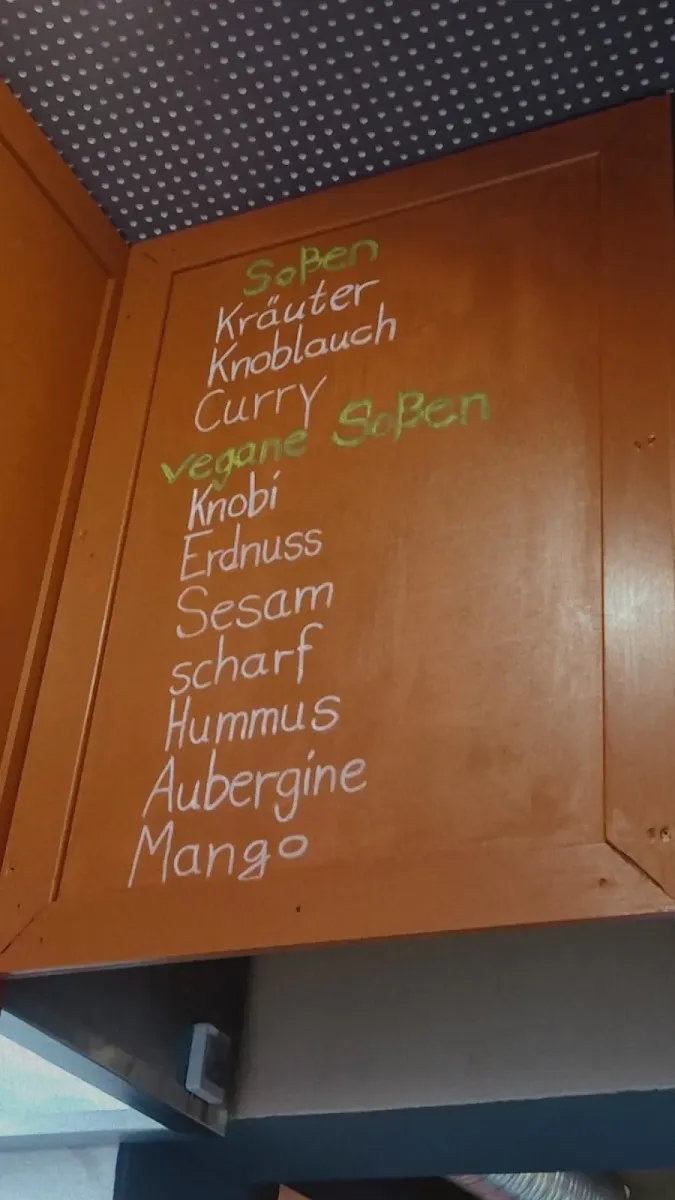 Soßen
Kräuter
Knoblauch
Curry
vegane Soßen
Knobi
Erdnuss
Sesam
scharf
Hummus
Aubergine
Mango